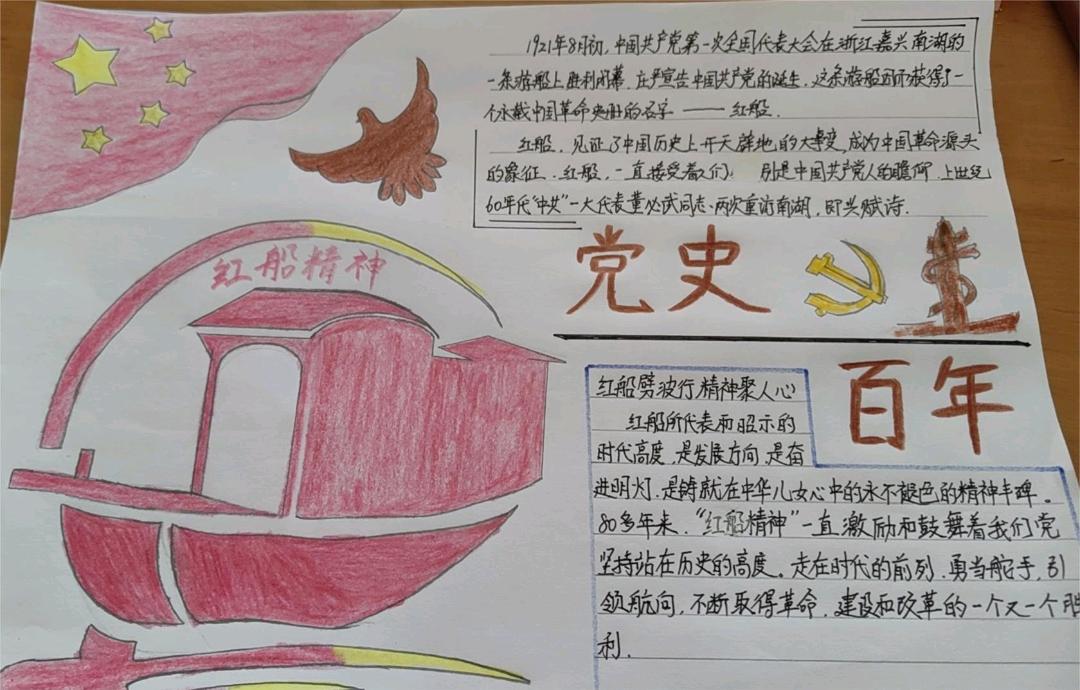 1921年8月初,中国共产党第一次全国代表大会在浙江嘉兴南湖的
一条游船上胜利闭幕,庄严宣告中国共产党的诞生。这条游船因而获得了一
个永载中国革命史册的名字——红船。
红船,见证了中国历史上开天辟地的大事变,成为中国革命源头
的象征。红船,一直接受着人们 别是中国共产党人的瞻仰,上世纪
60年代"中共"一大代表董必武同志、两次重访南湖,即兴赋诗.
红船精神
党史
百年
红船劈波行,精神聚人心
红船所代表和昭示的
时代高度,是发展方向,是奋
进明灯,是铸就在中华儿女心中的永不褪色的精神丰碑。
80多年来,"红船精神"一直激励和鼓舞着我们党
坚持站在历史的高度。走在时代的前列,勇当舵手,引
领航向,不断取得革命,建设和改革的一个又一个胜
利.